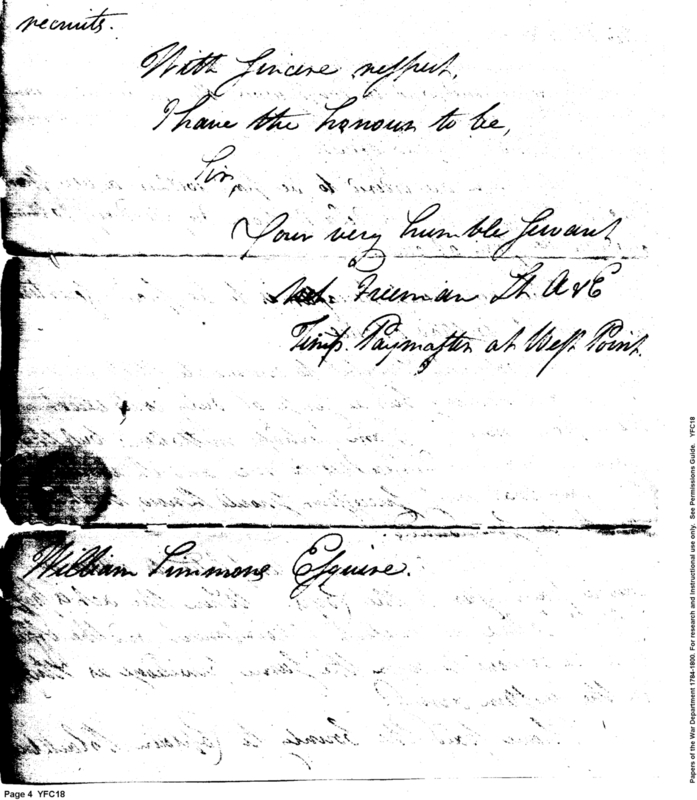 recruits.
With sincere respect,
I have the honour to be,
Sir,
Your very humble servant
Freeman Lt A & E
Temp. Paymaster at West Point.
William Simmons Esquire.
Page 4 YFC18
Papers of the War Department 1784-1800. For research and instructional use only. See Permissions Guide. YFC18